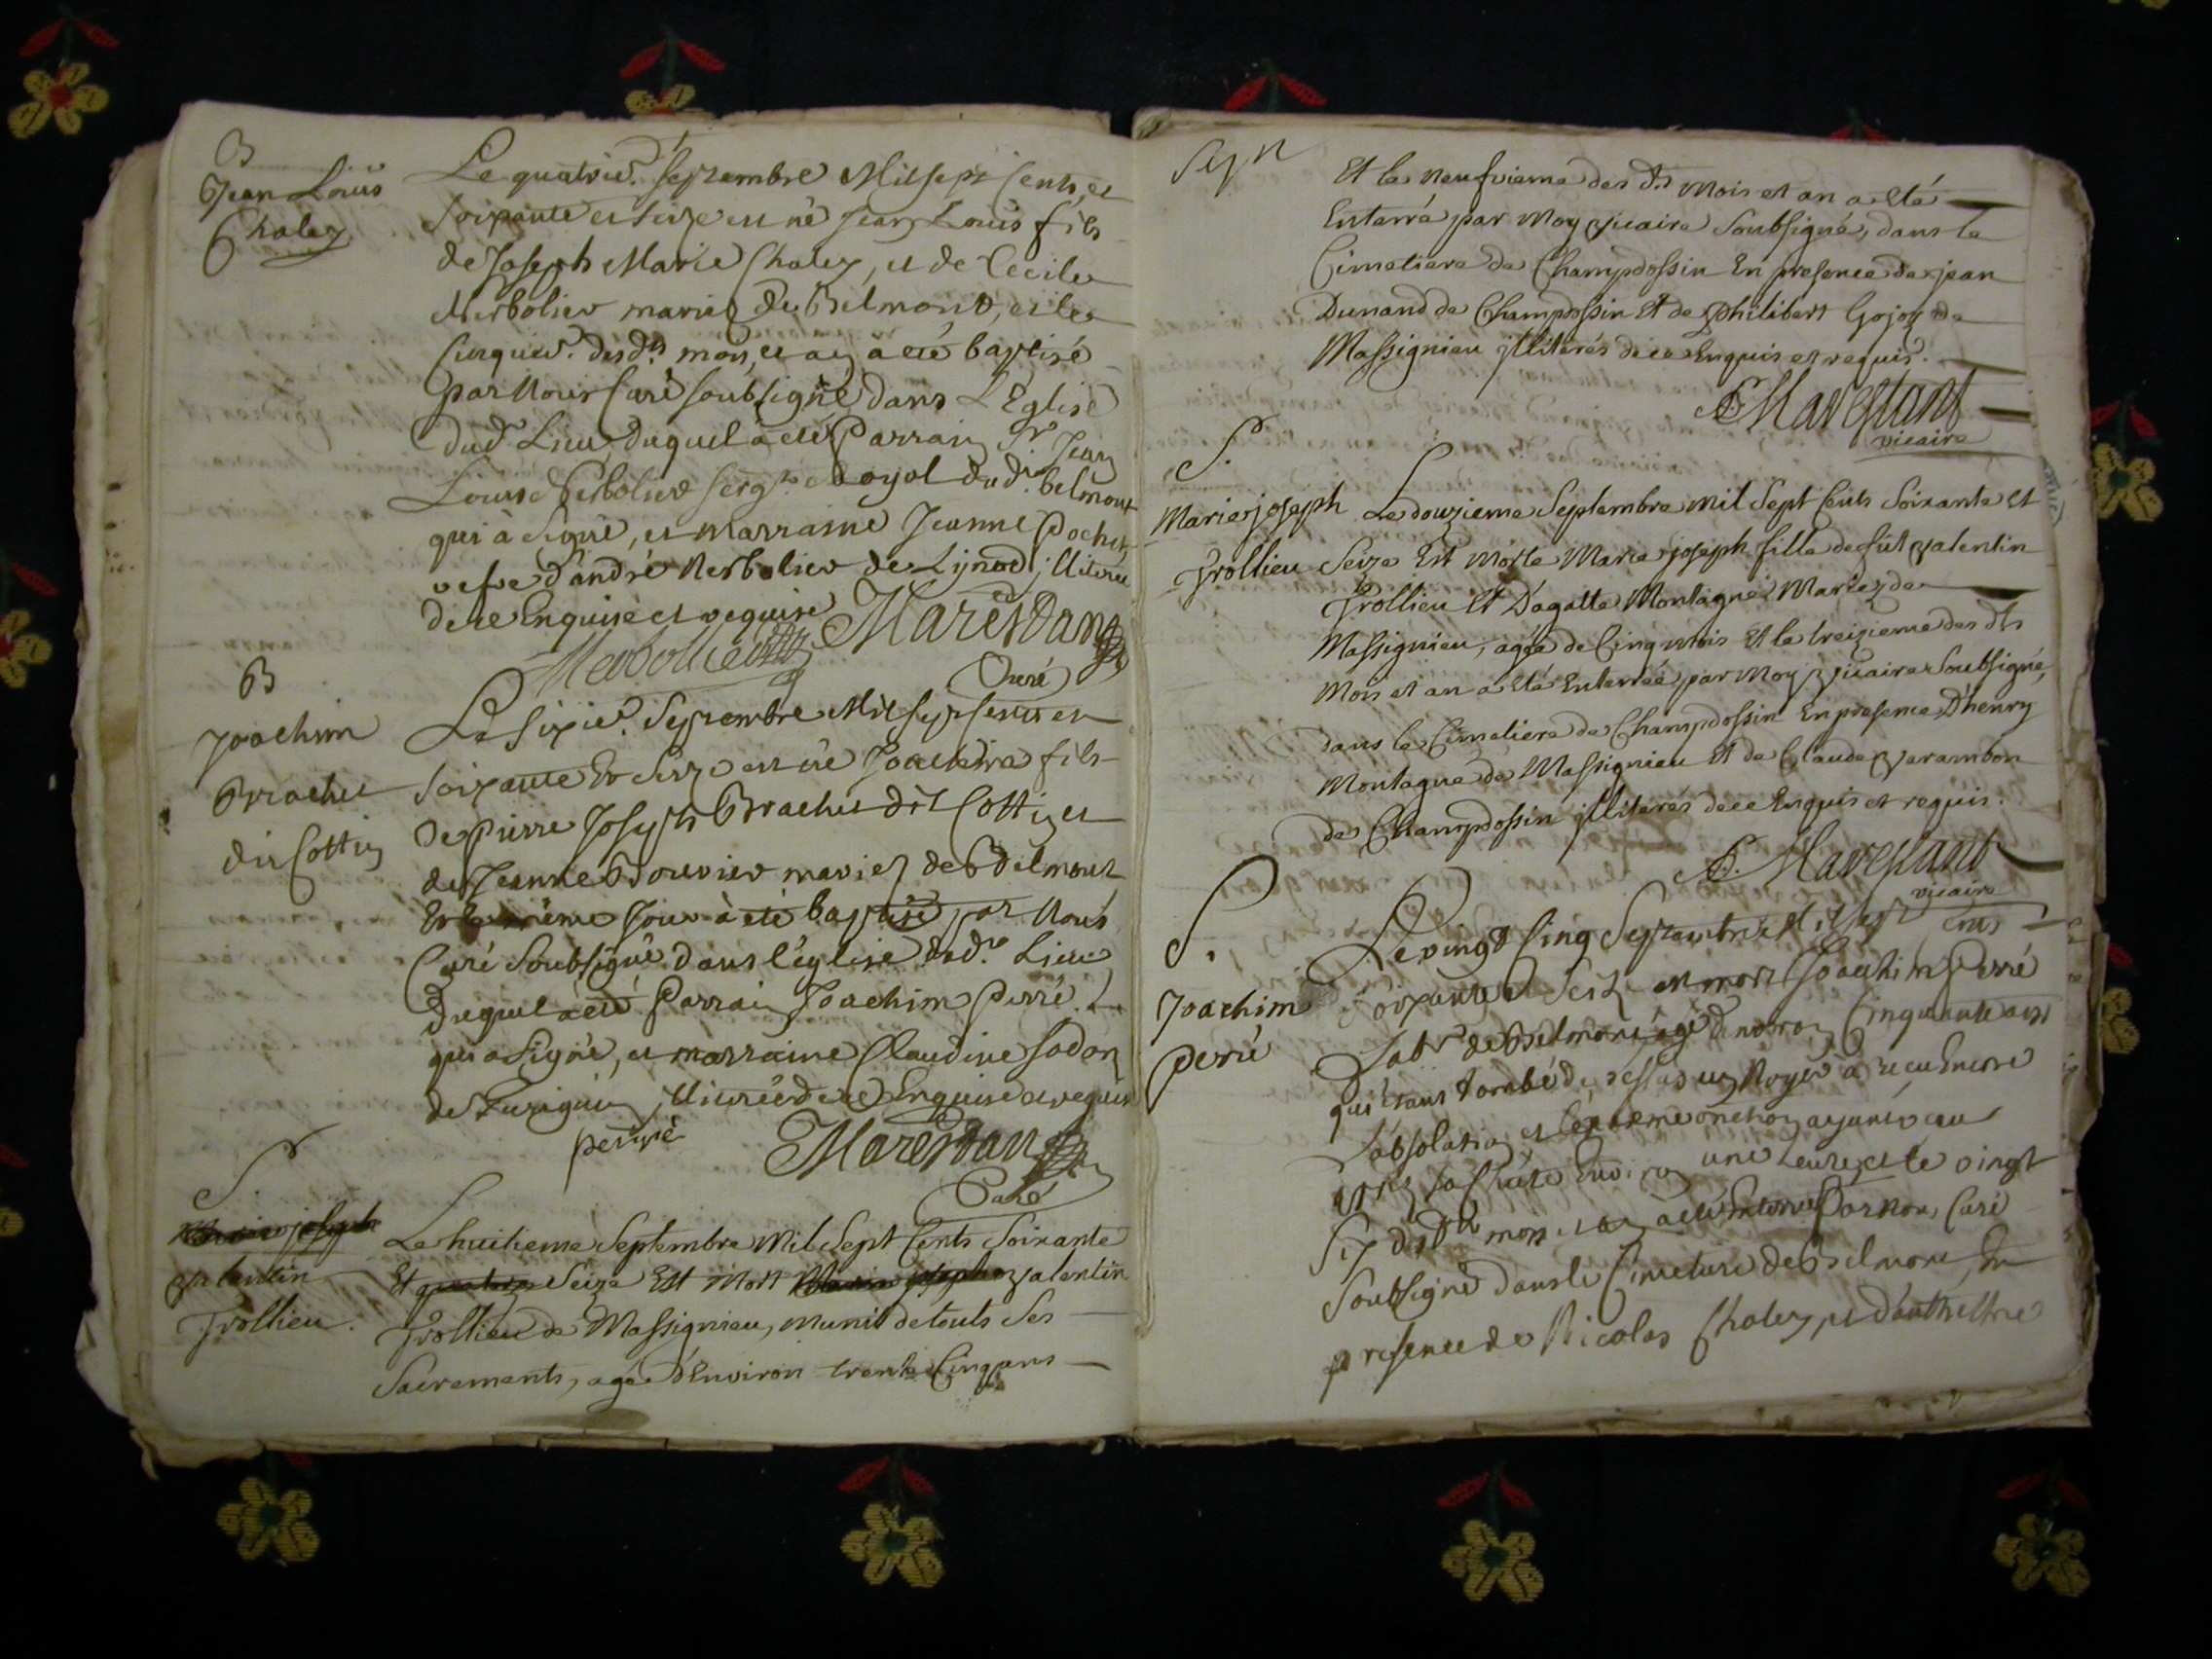 B
Jean Louis
Chaley
Le quatrie. Septembre Mil sept cents, et
soixante et seize est né Jean Louis fils
de Joseph Marie Chaley, et de Cecile
Nerbolier mariez de Belmont, et le
cinquie. desd. mois, et an a eté baptisé
par Nous Curé soubsigné dans L'Eglise
dud. Lieu, duquel à eté Parrain Sr Jean
Louis Nerbolier serg. Royal dud. belmont
qui à signé, et marraine Jeanne Pochet
vefve d'andré Nerbolier de Lijnod illitérée
de ce Enquise et requise
Nerbollier Marestan
Curé
B
Joachim
Brachet
dit Cottin
Le sixie. Septembre Mil sept cents et
soixante Et seize est né Joachim fils
de Pierre Joseph Brachet dit Cottin et
de Jeanne Bouvier mariez de Belmont
Et le même Jour à eté baptisé par Nous
Curé soubsigné dans l'église dud. Lieu
duquel à eté Parrain Joachim Perré L.
qui a signé, et marraine Claudine
de illitérée de ce Enquise et requise
perré Marestan
Curé
S.
Marie joseph
valentin
Trollieu.
Le huitieme Septembre Mil Sept Cents Soixante
Et quatorze Seize Est Mort Marie josephe valentin
Trollieu de Massignieu, munit de touts ses
Sacrements, agé d'Environ trente Cinq ans
Sepn
Et le Neufvieme des ds mois et an a eté
Enterré par Moy vicaire Soubsigné, dans le
Cimetiere de Champdossin En presence de jean
Dunand de Champdossin Et de philibert Gojoz de
Massignieu illiterés de ce Enquis et requis.
Marestant
vicaire
S.
Marie joseph
Trollieu
Le douzieme Septembre mil Sept Cents Soixante Et
Seize Est Morte Marie joseph fille de fût valentin
Trollieu Et D'agatte Montagne Mariez de
Massignieu, agée de Cinq mois Et le treizieme des dts
Mois et an a eté Enterrée par Moy vicaire Soubsigné,
dans le Cimetiere de Champdossin En presence D'henry
Montagne de Massignieu Et de Claude varambon
de Champdossin illiterés de ce Enquis et requis.
Marestant
vicaire
S.
Joachim
perré
Le vingt Cinq Septembre Mil sept cents
soixante et Seize est mort Joachim Perré
Labr de Belmont agé d'environ Cinquante ans
qui étant tombé de dessus un Noyer à reçu Encore
l'absolution et l'extreme onction ayant vécu
après sa chute Environ une heure, et le vingt
six desdts mois et an à eté Enterré Par Nous Curé
Soubsigné dans le Cimetiere de Belmont, En
presence de Nicolas Chaley, et d'Anthelme